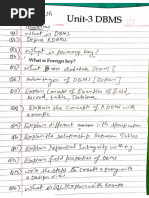 Unit-3 DBMS
Questions
Q1) What is DBMS
Q2) Define RDBMS
Q3) What is primary key?
Q4) What is Foreign key?
Q5) What does database [means]?
Q6) Advantages of DBMS [Explain]
Q7) Explain the Concepts Examples of field, record, table, Database.
Q8) Explain the Concept of RDBMS with example.
Q9) Explain different with specification
Q10) Explain the Relationship Between Tables
Q11) Explain Referential Integrity with e.g.
Q12) Explain field properties of DBMS
Q13) Write the steps to create a query with
Q14) What is SQL? Explain with Example